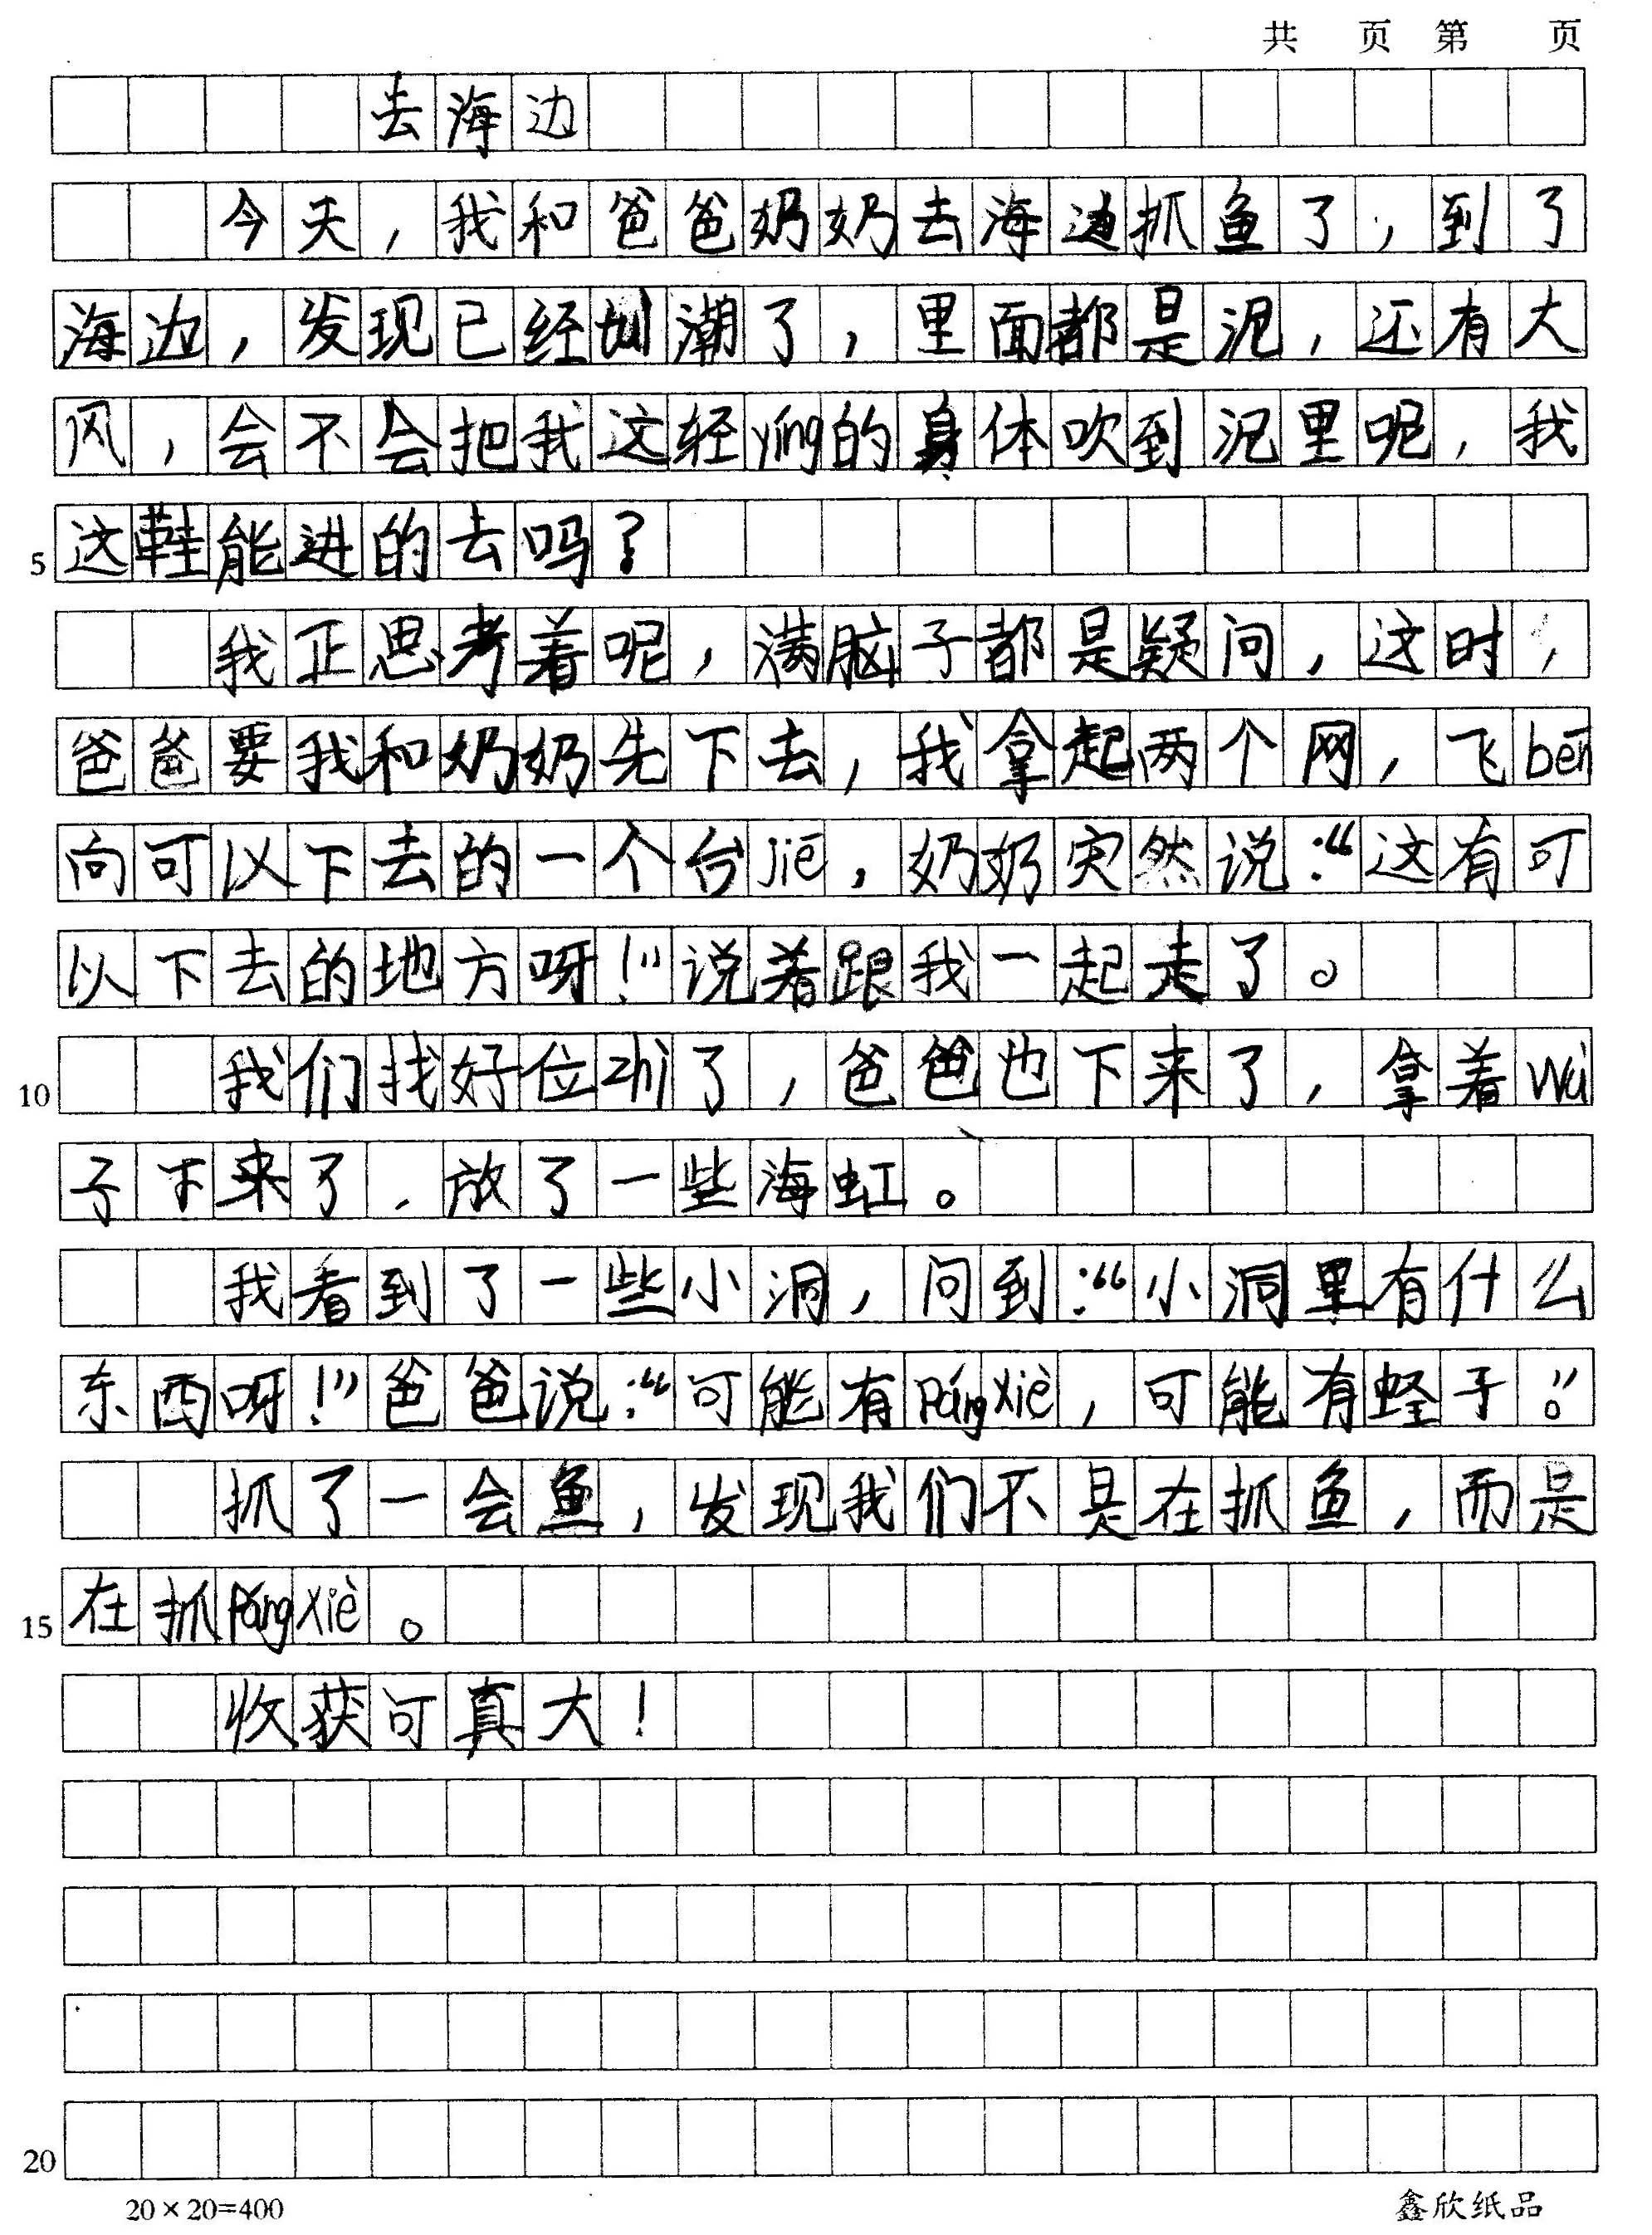 共 页 第 页
去海边
今天，我和爸爸奶奶去海边抓鱼了，到了
海边，发现已经潮了，里面都是泥，还有大
风，会不会把我这轻yīng的身体吹到泥里呢，我
5 这鞋能进的去吗？
我正思考着呢，满脑子都是疑问，这时，
爸爸要我和奶奶先下去，我拿起两个网，飞bēn
向可以下去的一个台jiē，奶奶突然说：“这有可
以下去的地方呀！”说着跟我一起走了。
10 我们找好位zhì了，爸爸也下来了，拿着wà
子下来了，放了一些海虹。
我看到了一些小洞，问到：“小洞里有什么
东西呀！”爸爸说：“可能有pángxiè，可能有蛏子。”
抓了一会鱼，发现我们不是在抓鱼，而是
15 在抓pángxiè。
收获可真大！
20
20×20=400 鑫欣纸品